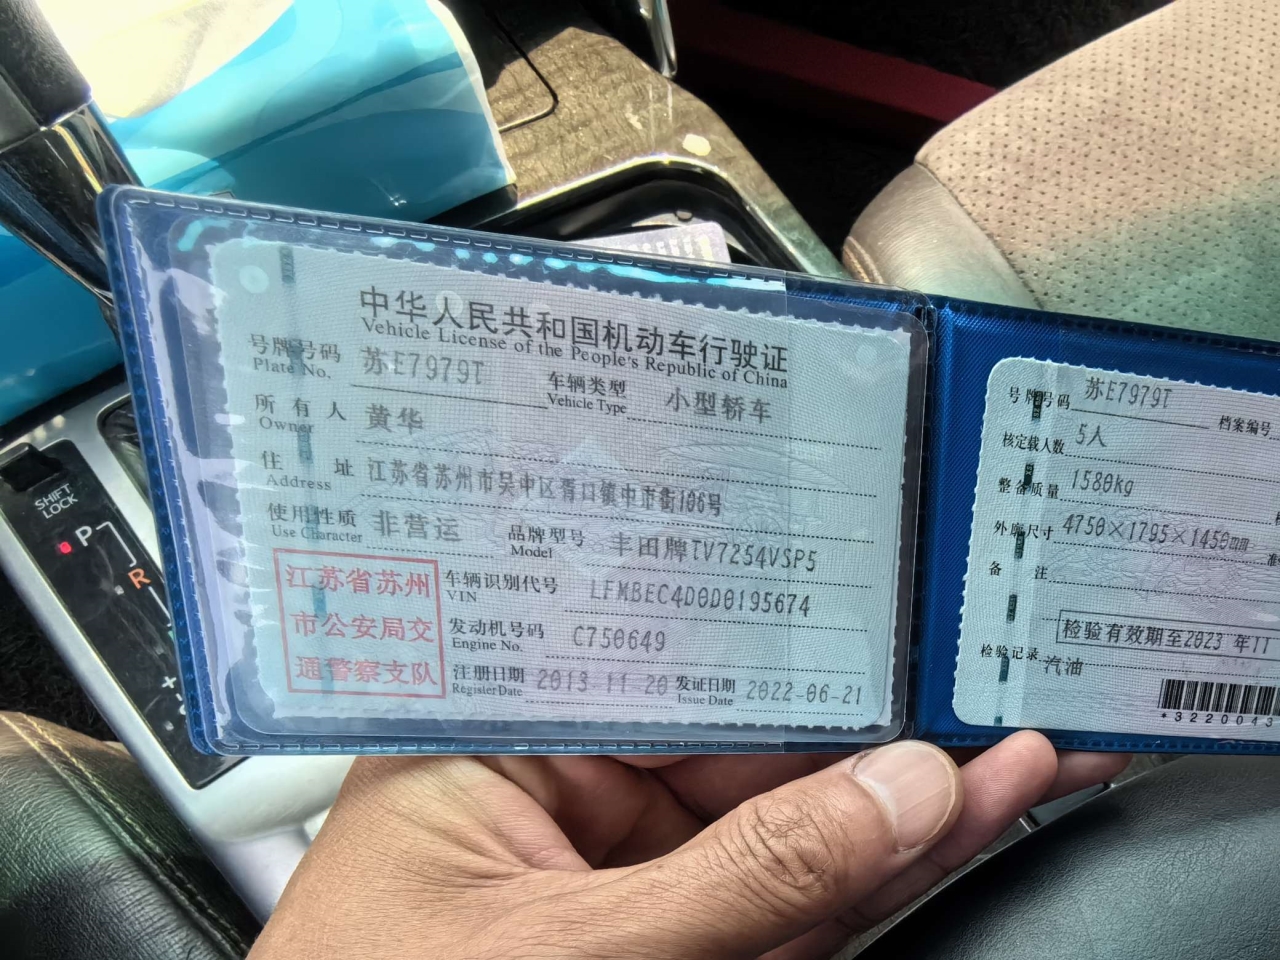 中华人民共和国机动车行驶证
Vehicle License of the People's Republic of China
号牌号码 苏E7979T 车辆类型 小型轿车
Plate No. Vehicle Type
所有人 黄华
Owner
住址 江苏省苏州市吴中区胥口镇中市街106号
Address
使用性质 非营运 品牌型号 丰田牌TV7254VSP5
Use Character Model
江苏省苏州
市公安局交
通警察支队
车辆识别代号 LFMBEC4D0D0195674
VIN
发动机号码 C750649
Engine No.
注册日期 2013-11-20 发证日期 2022-06-21
Register Date Issue Date
号牌号码 苏E7979T 档案编号
核定载人数 5人
整备质量 1580kg
外廓尺寸 4750×1795×1450
备注
检验有效期至2023年11
检验记录 汽油
*3220043
SHIFT
LOCK
P
R
+